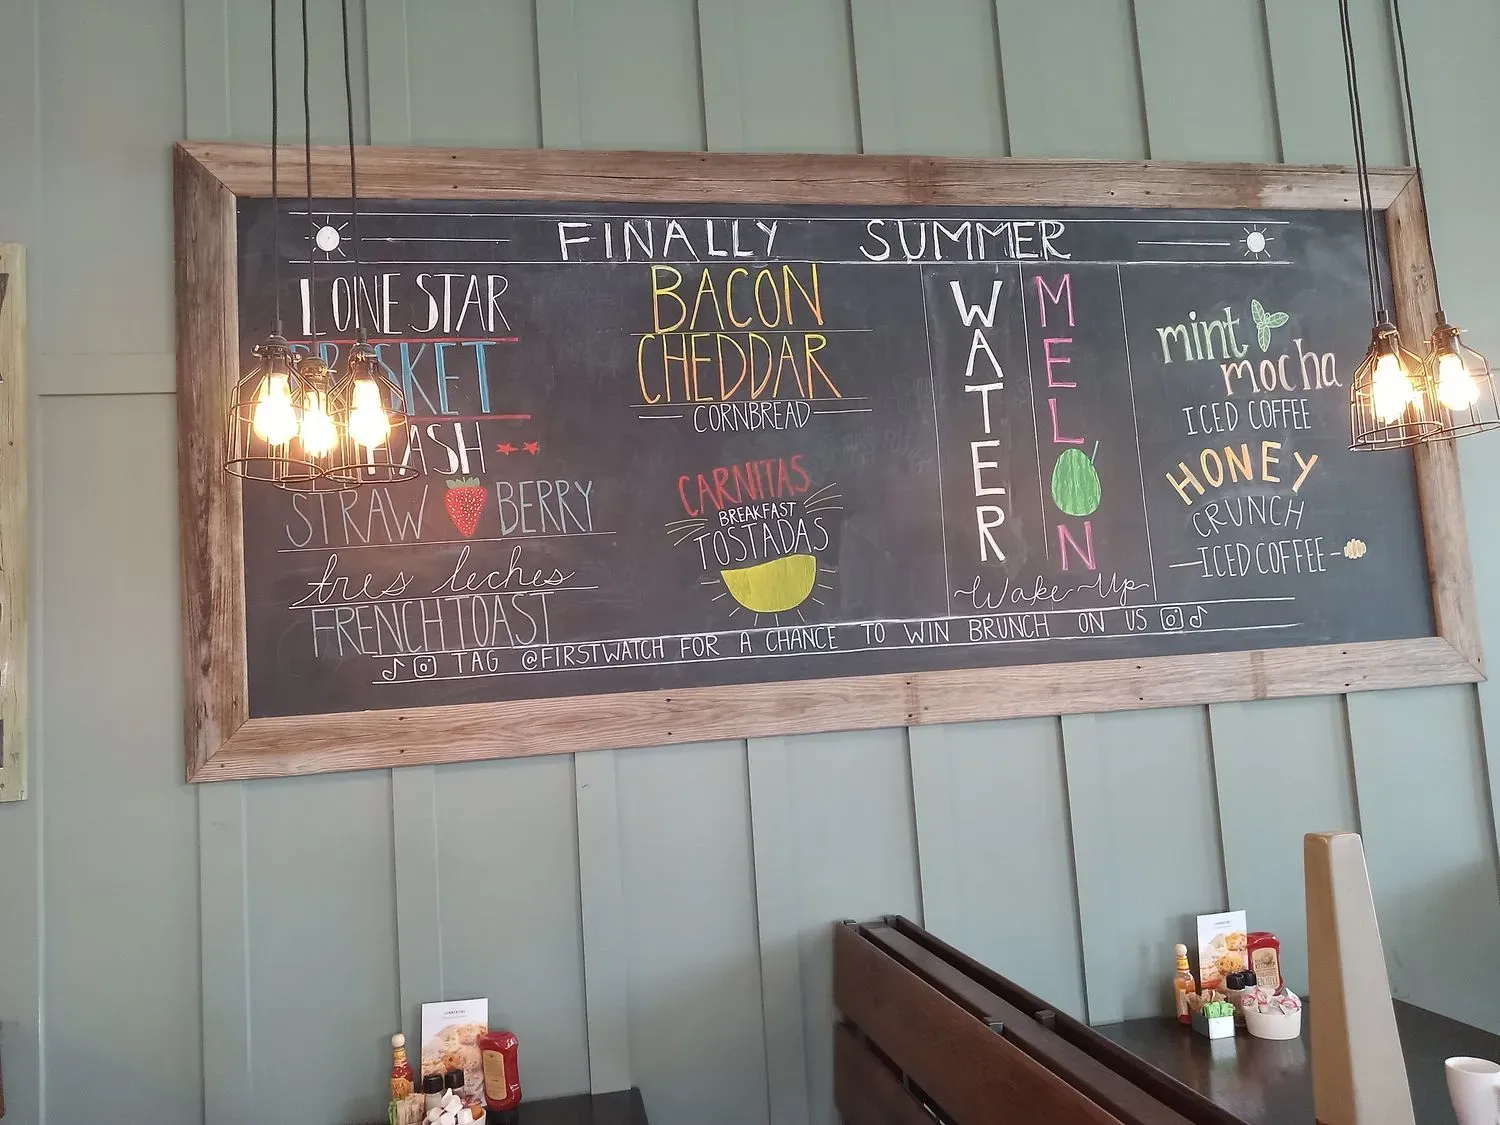 FINALLY SUMMER
LONE STAR
BRISKET
HASH
STRAWBERRY
tres leches
FRENCH TOAST
BACON
CHEDDAR
CORNBREAD
CARNITAS
BREAKFAST
TOSTADAS
WATER
MELON
~Wake-Up~
mint
mocha
ICED COFFEE
HONEY
CRUNCH
ICED COFFEE
TAG @FIRSTWATCH FOR A CHANCE TO WIN BRUNCH ON US